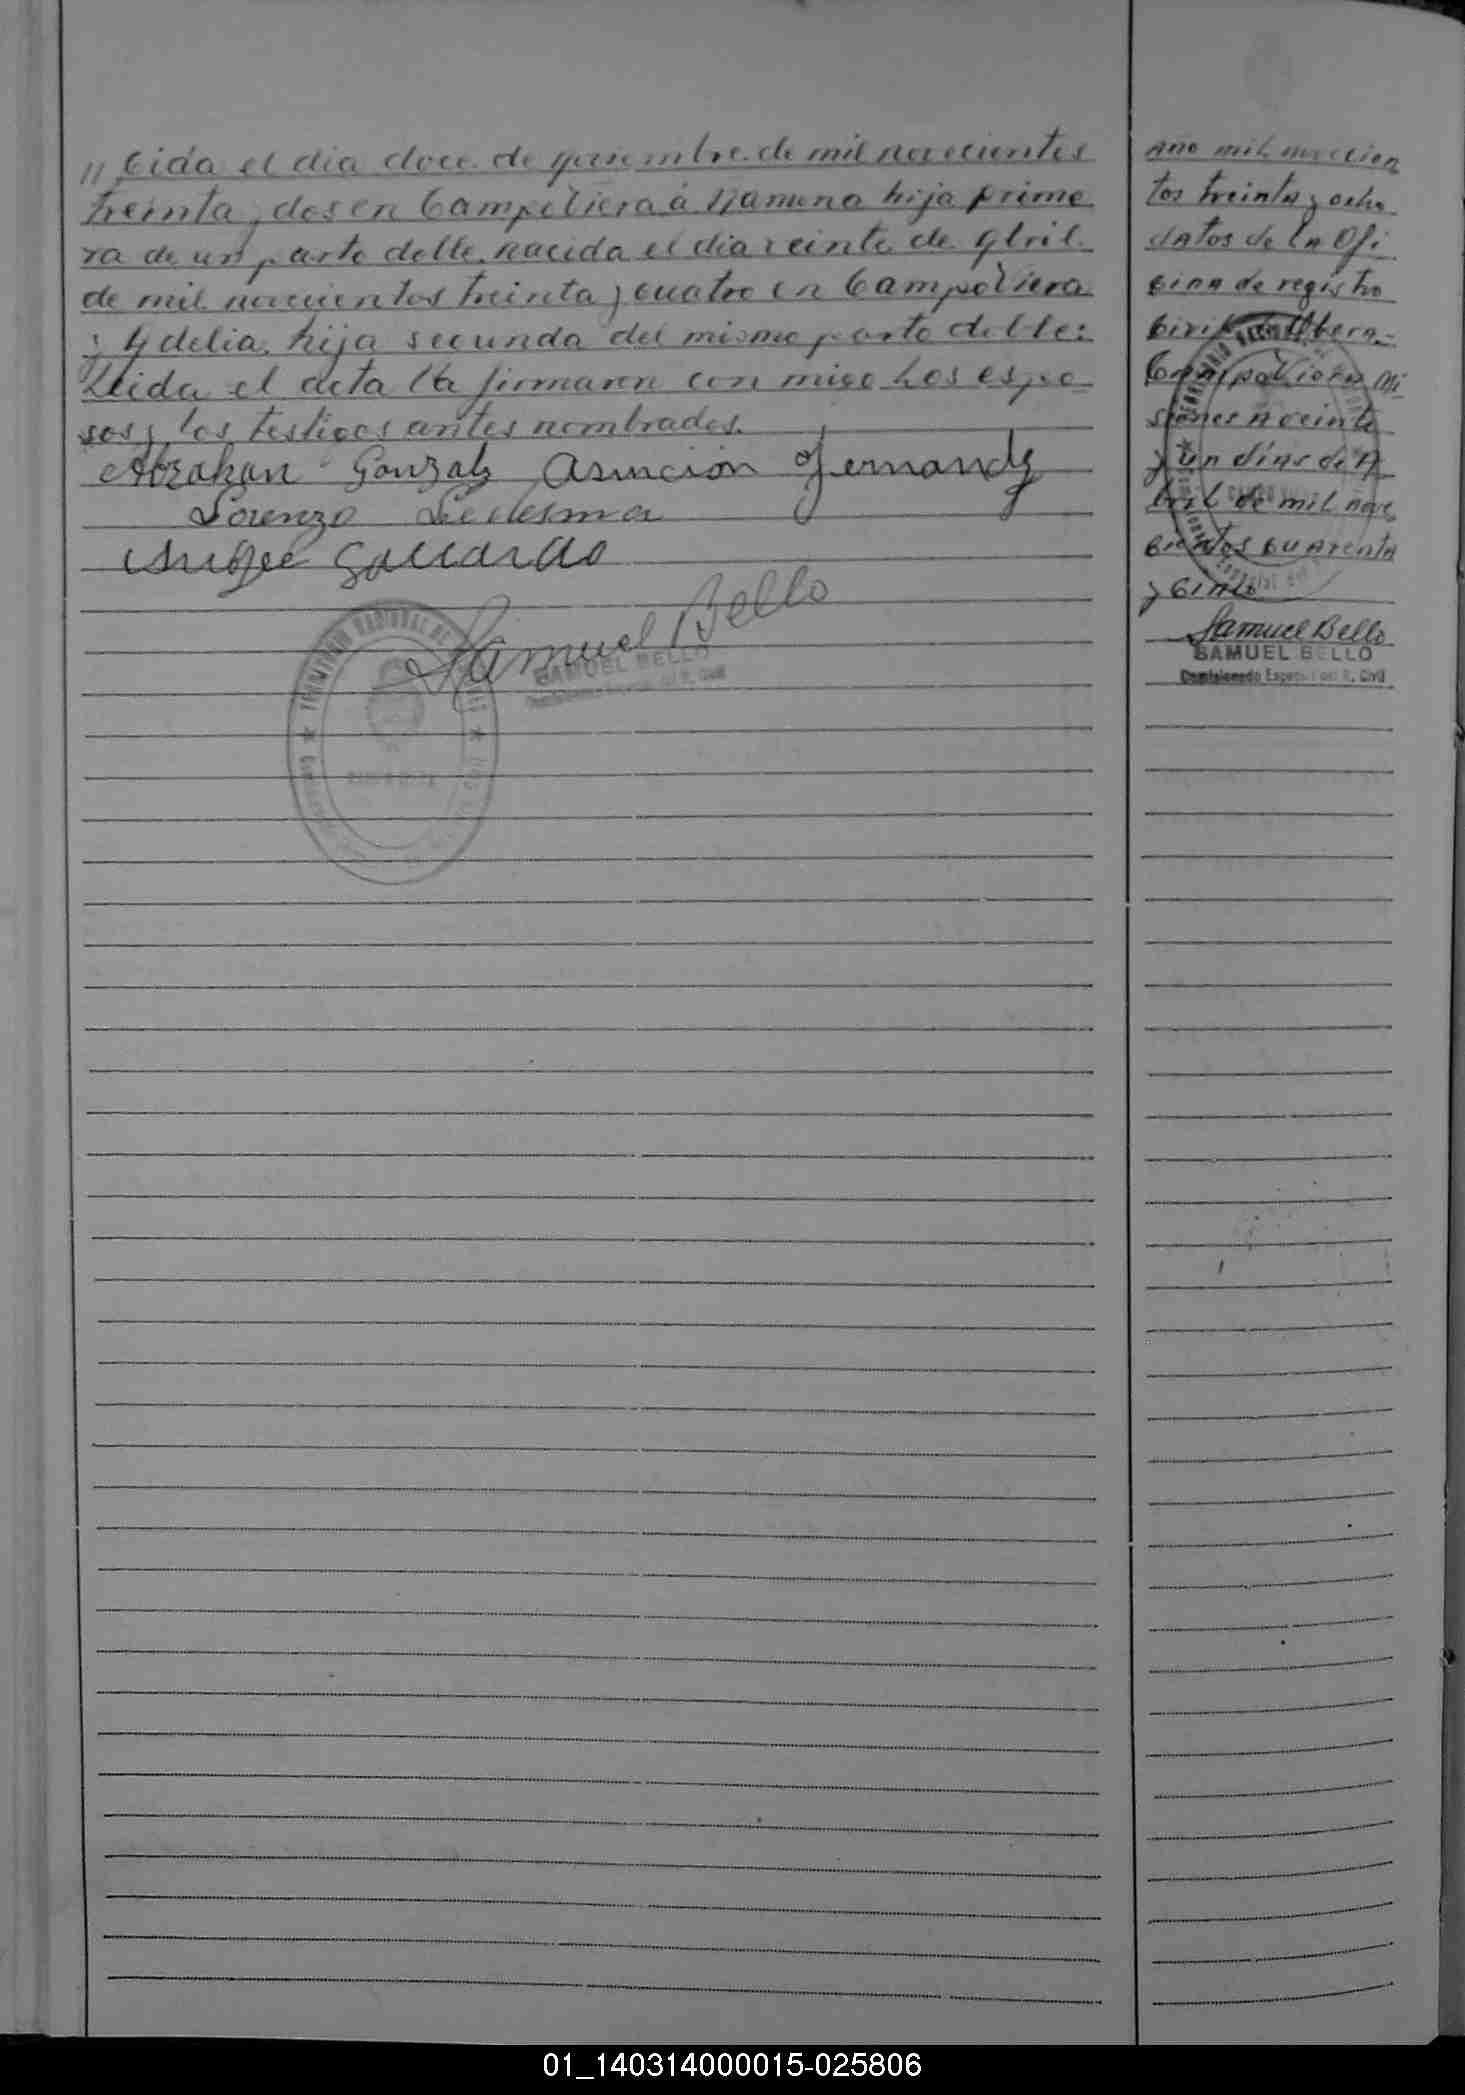 " cida el dia doce de noviembre de mil novecientos
treinta y dos en Campo Viera á Ramona hija prime
ra de un parto doble nacida el dia veinte de Abril
de mil novecientos treinta y cuatro en Campo Viera
y Adelia hija segunda del mismo parto doble:
Leida el acta la firmaron con migo Los espo
sos y los testigos antes nombrados.
Abrahan Gonzalz Asuncion Fernandz
Lorenzo Ledesma
Gallardo
Samuel Bello
SAMUEL BELLO
TERRITORIO NACIONAL DE
Año mil novecien
tos treinta y ocho
datos de la Ofi
cina de registro
Civil de Obera.-
Campo Viera Mi
siones a veinte
y un dias de A
bril de mil nove
cientos cuarenta
y cinco
Samuel Bello
SAMUEL BELLO
Comisionado Especial del R. Civil
01_140314000015-025806